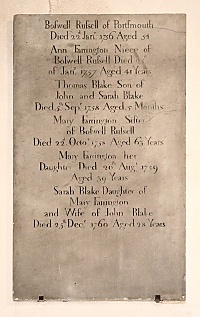 Boswell Russell of Portsmouth
Died 22d Janry. 1756 Aged 51
Ann Farrington Niece of
Boswell Russell Died
of Janry. 1757 Aged 41 Years
Thomas Blake Son of
John and Sarah Blake
Died 5th Sepr. 1758 Aged 5 Months
Mary Farrington Sister
of Boswell Russell
Died 22d. Octobr. 1758 Aged 63 Years
Mary Farrington her
Daughter Died 20th Augt. 1759
Aged 39 Years
Sarah Blake Daughter of
Mary Farrington
and Wife of John Blake
Died 25th Decr. 1760 Aged 28 Years